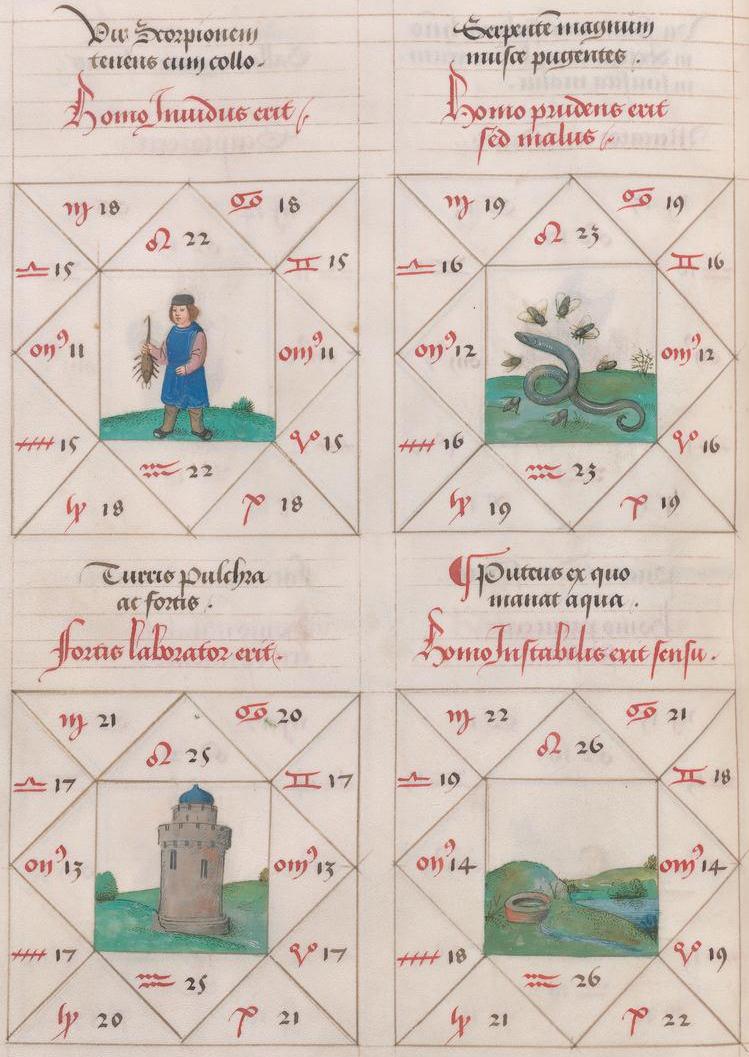 Vir Scorpionem
tenens cum collo.
Homo Invidus erit
♍ 18
♋ 18
♌ 22
♎ 15
♊ 15
11
11
15
15
♒ 22
18
18
Serpentē magnum
musce pugentes.
Homo prudens erit
sed malus
♍ 19
♋ 19
♌ 23
♎ 16
♊ 16
12
12
16
16
♒ 23
19
19
Turris pulchra
ac fortis.
Fortis laborator erit.
♍ 21
♋ 20
♌ 25
♎ 17
♊ 17
13
13
17
17
♒ 25
20
21
¶ Puteus ex quo
manat aqua.
Homo Instabilis erit sensu.
♍ 22
♋ 21
♌ 26
♎ 19
♊ 18
14
14
18
19
♒ 26
21
22